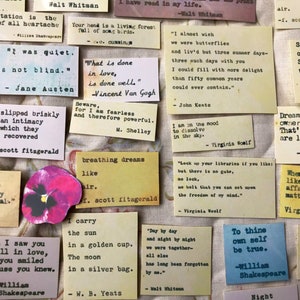 Walt Whitman
is the
of all heartache
-William Shakespeare
I have read in my life.
-Walt Whitman
Your hand is a living forest
full of song birds.
- e.e. cummings
"I was quiet,
is not blind."
Jane Austen
"What is done
in love,
is done well."
-Vincent Van Gogh
"I almost wish
we were butterflies
and liv'd but three summer days-
three such days with you
I could fill with more delight
than fifty common years
could ever contain."
- John Keats
Beware,
for I am fearless
and therefore powerful.
M. Shelley
slipped briskly
an intimacy
which they
recovered
scott fitzgerald
I am in the mood
to dissolve
in the sky.
- Virginia Woolf
Dreams
breathing dreams
like
air.
f. scott fitzgerald
"Lock up your libraries if you like;
but there is no gate,
no lock,
no bolt that you can set upon
the freedom of my mind."
- Virginia Woolf
I saw you
fell in love,
you smiled
because you knew.
-William
Shakespeare
carry
the sun
in a golden cup.
The moon
in a silver bag.
- W. B. Yeats
"Day by day
and night by night
we were together-
all else
has long been forgotten
by me."
- Walt Whitman
To thine
own self
be true.
-William
Shakespeare
Night